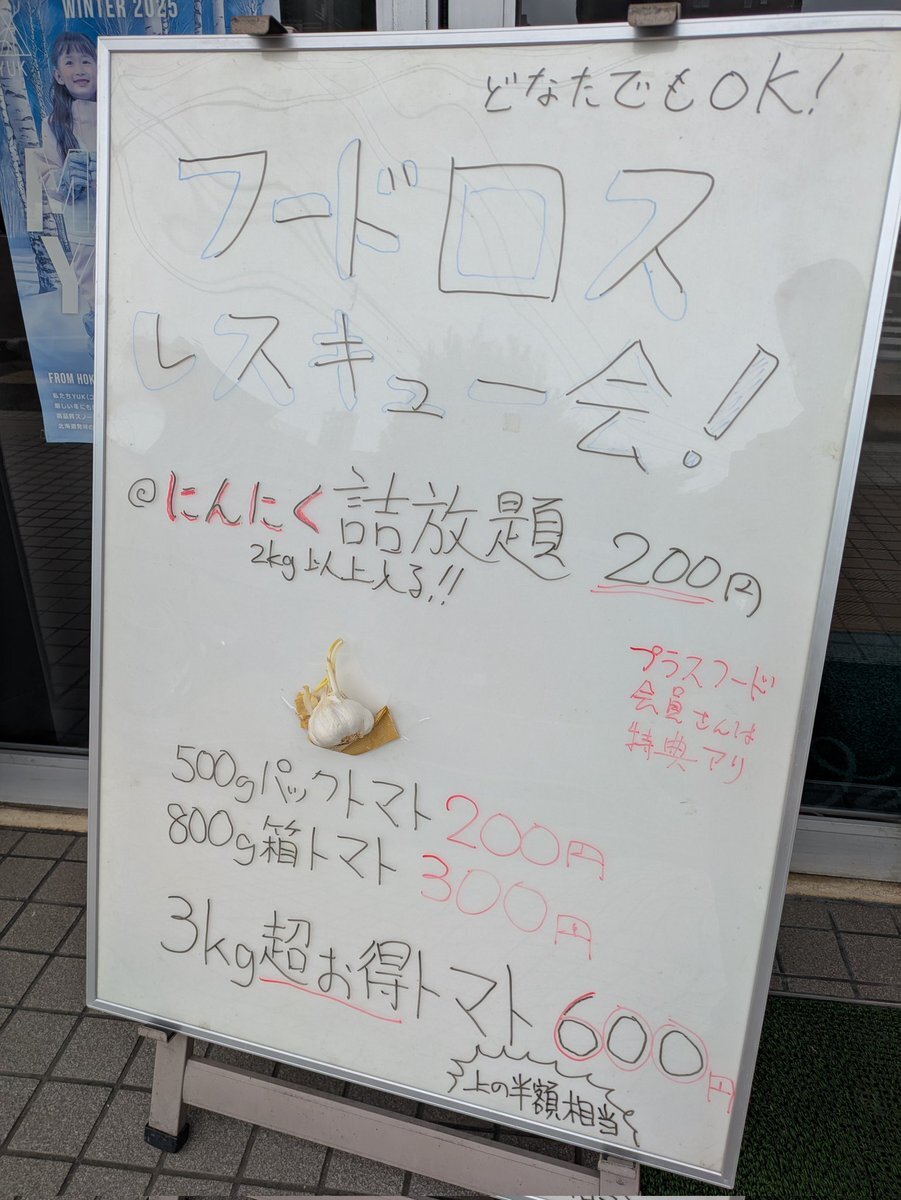 WINTER 2025
YUK
FROM HOK
どなたでもOK!
フードロス
レスキュー会!
@にんにく詰放題 200円
2kg以上入る!!
プラスフード
会員さんは
特典アリ
500gパックトマト200円
800g箱トマト 300円
3kg超お得トマト 600円
上の半額相当